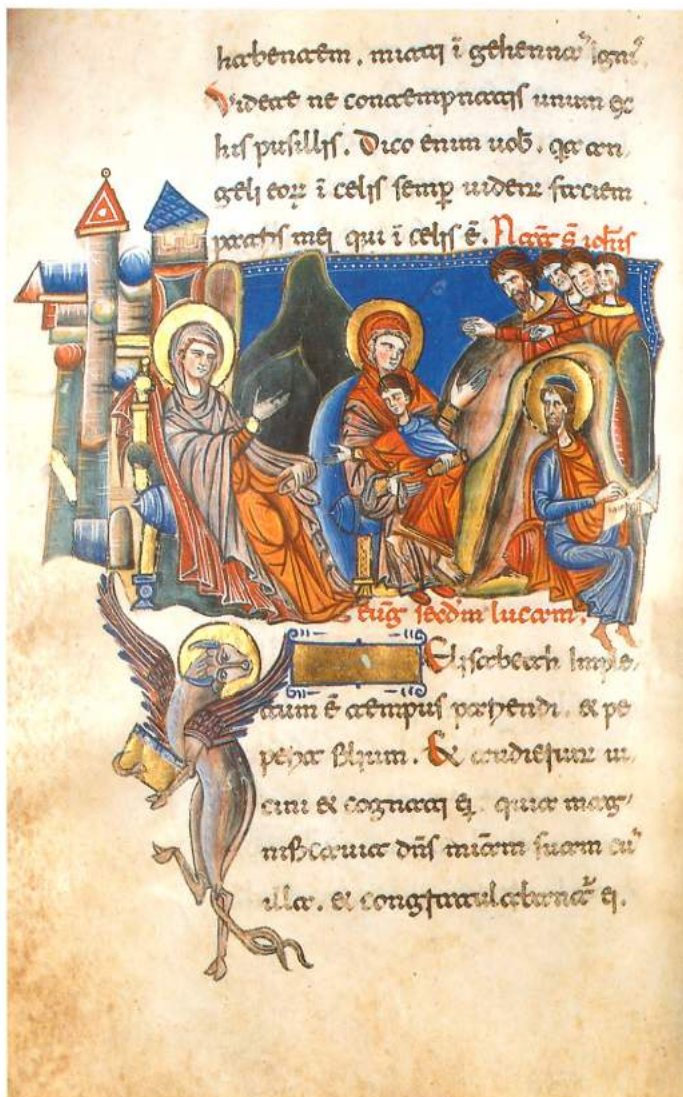 habentem. mitti ī gehennā igni᷒
Videte ne contempnatis unum ex
his pusillis. Dico enim uob̄. qa an,
geli eoꝝ ī celis semꝑ uident faciem
patris mei qui ī celis ē. Nat̄ s̄ ioh̄is
Euḡ secdm lucam.
Elisabeth Imple,
tum ē tempus pariendi. et pe
perit filium. Et audierunt ui
cini et cognati ei᷒. quia mag,
nificauit dn̄s miam̄ suam cū
illa. et congratulabant᷑ ei.